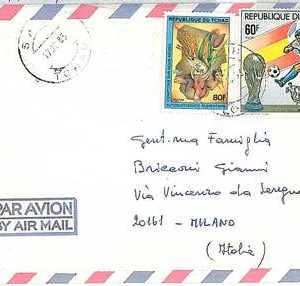 REPUBLIQUE DU TCHAD
80F
AUTOSUFFISANCE ALIMENTAIRE
REPUBLIQUE DU
60F
Gent.ma Famiglia
Bricconi Gianni
Via Vincenzo da Seregno
20161 - MILANO
(Italia)
PAR AVION
BY AIR MAIL